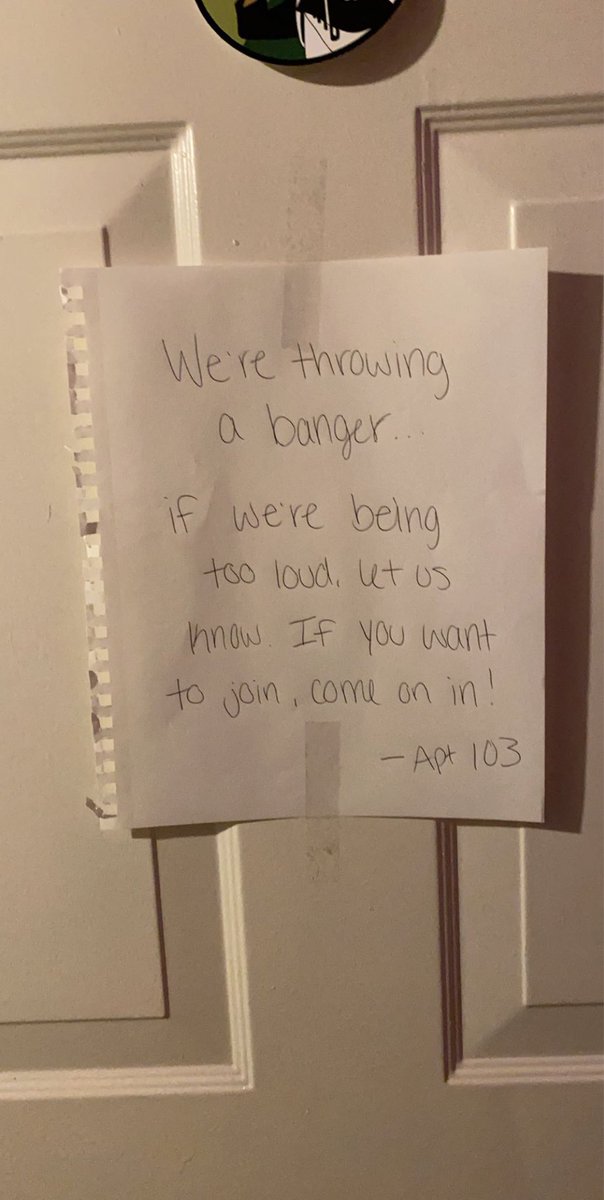 We're throwing
a banger...
if we're being
too loud, let us
know. If you want
to join, come on in!
- Apt 103